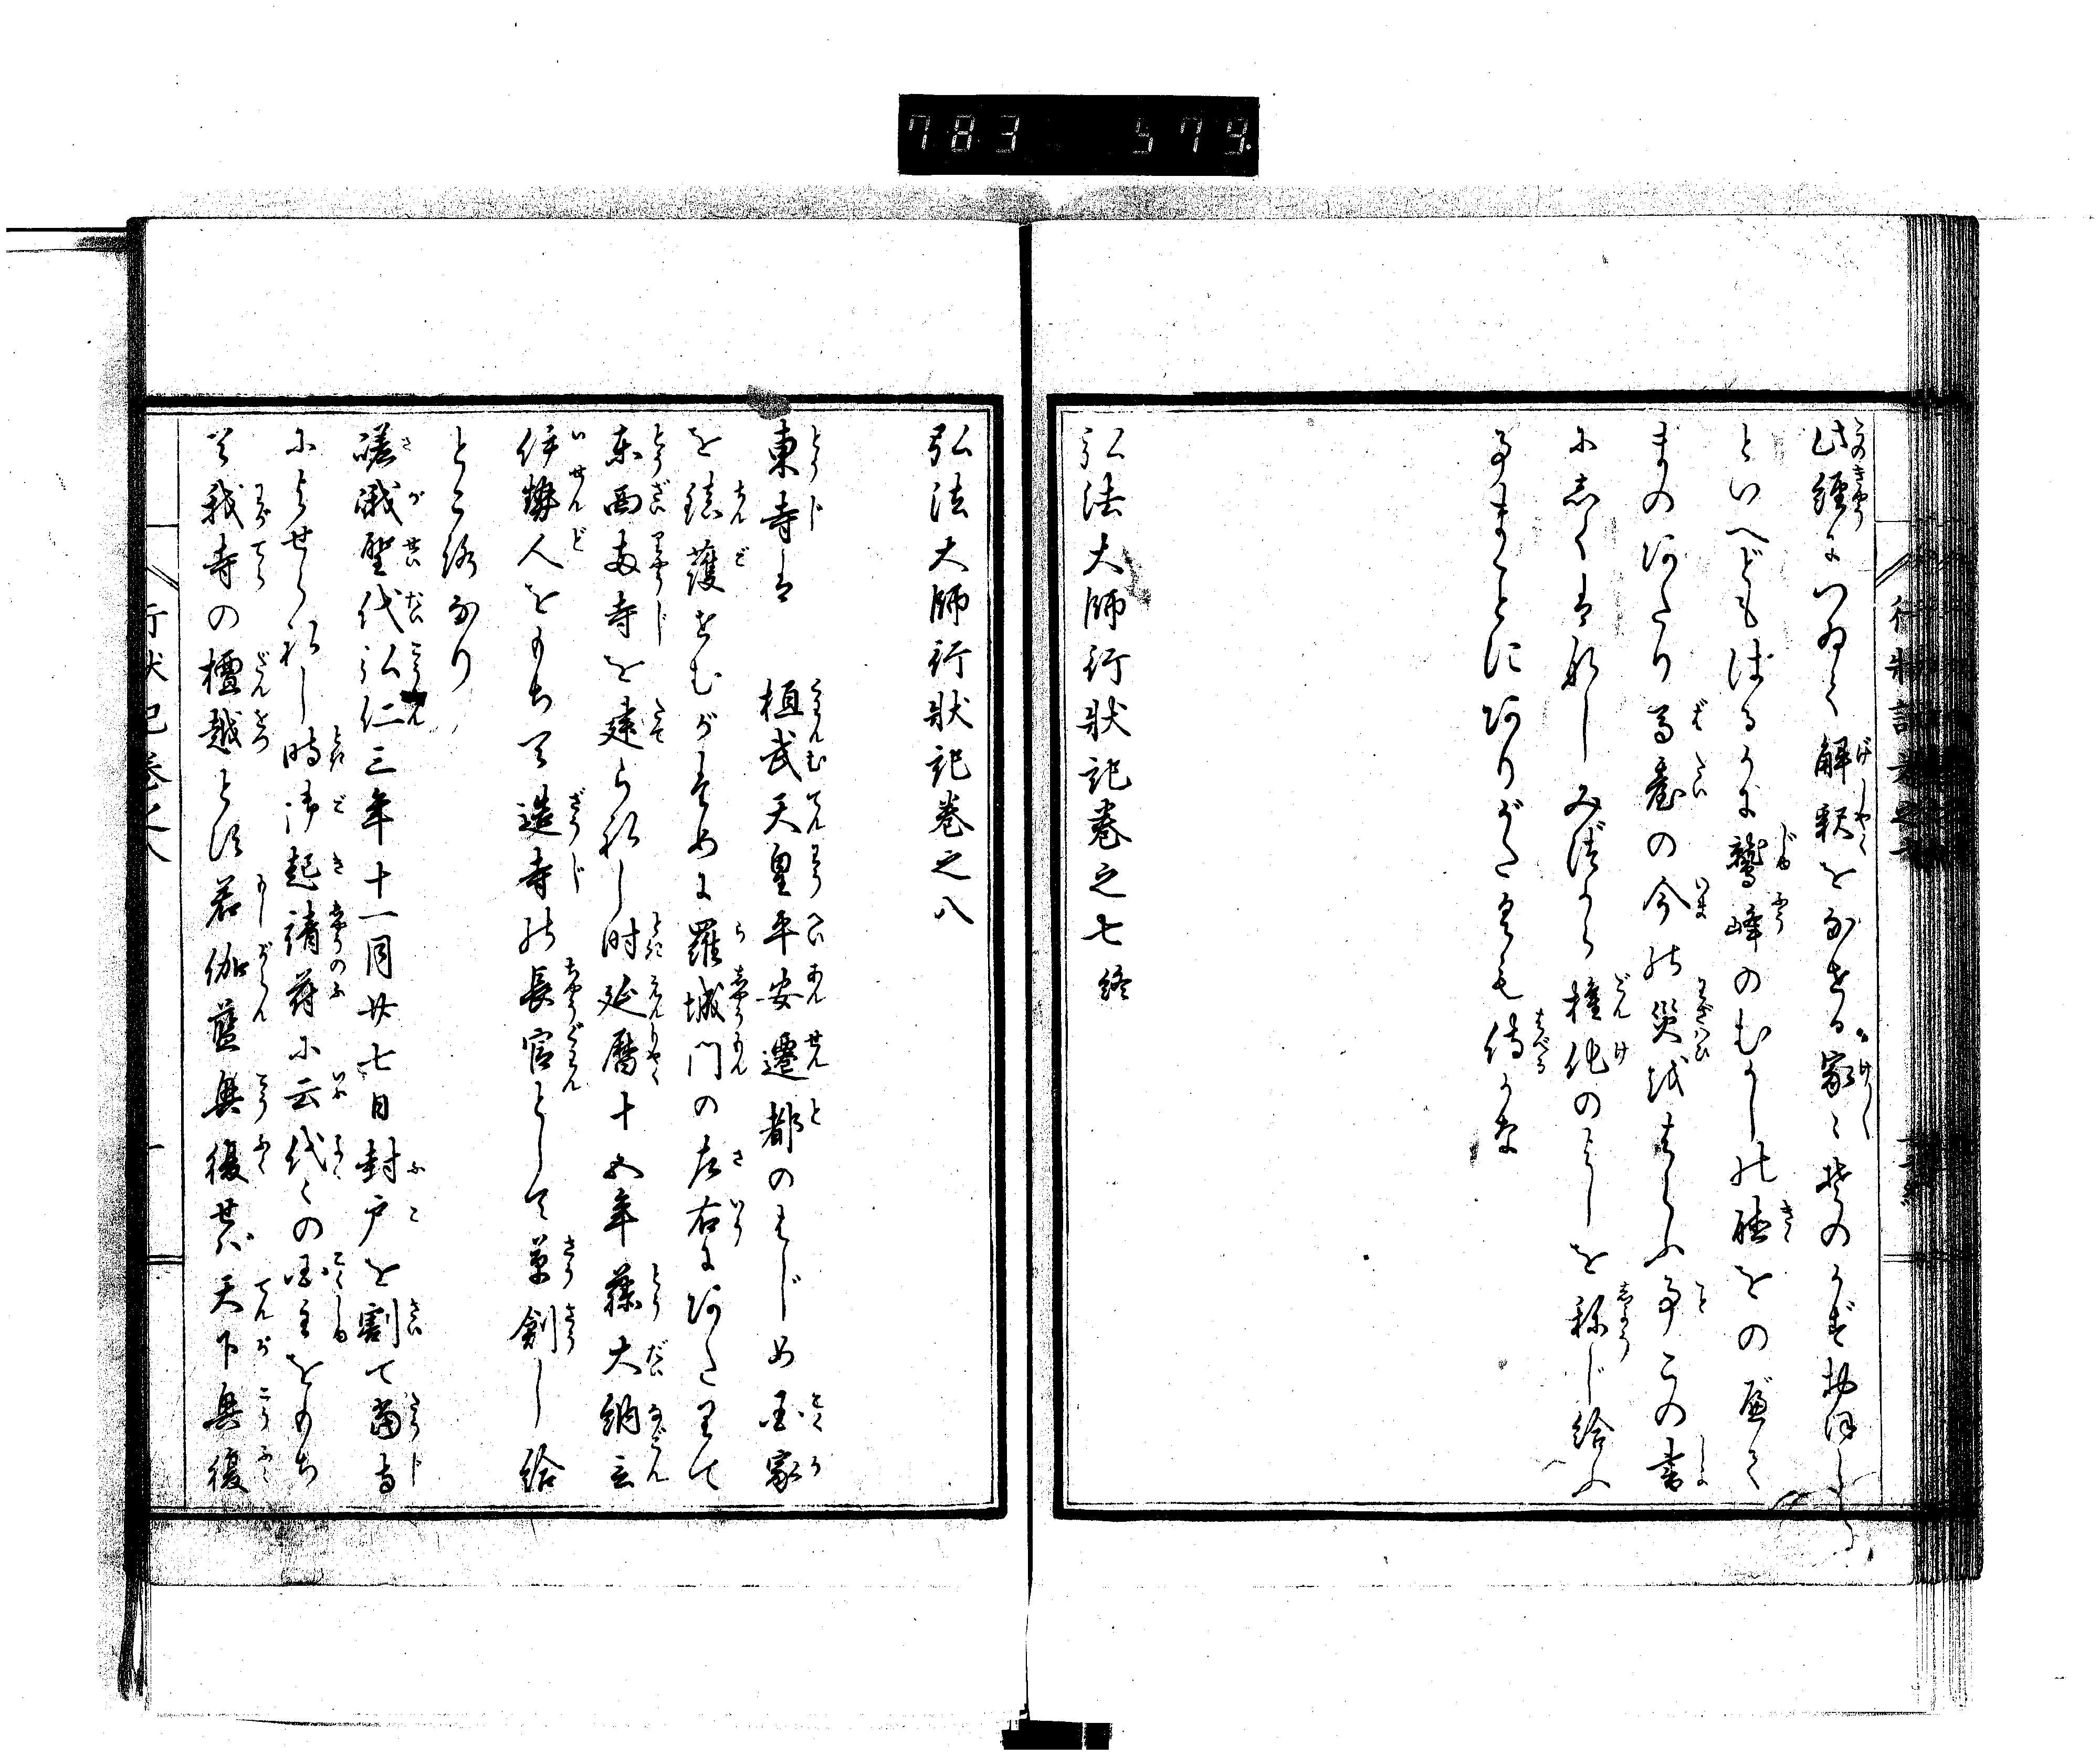 783 579
此経につゐて解釈をなせる家〻其のかず おほし
といへどもはるかに鷲峰のむかしの聴をのべて
まのあたり馬臺の今の災をはらふ事この書
にしくはなしみづから権化のよしを称じ給ふ
事まことにありがたくも侍るかな
弘法大師行状記巻之七終
弘法大師行状記巻之八
東寺は 桓武天皇平安遷都のはじめ国家
を鎮護せむがために羅城門の左右にあたりて
東西両寺を建られし時延暦十五年藤大納言
伊勢人をもちて造寺の長官として草創し給
ところなり
嵯峨聖代弘仁三年十一月廿七日封戸を割て当寺
によせられし時御起請符に云代〻の国主をもち
て我寺の檀越とす若伽藍興復せば天下興復
行状記巻之八